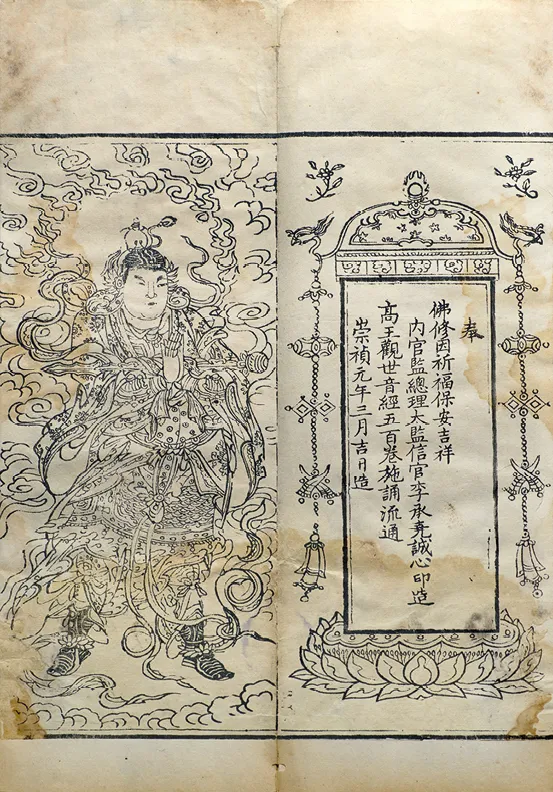 奉
佛修因祈福保安吉祥
内官監總理太監信官李承堯誠心印造
髙王觀世音經五百卷施誦流通
崇禎元年三月吉日造